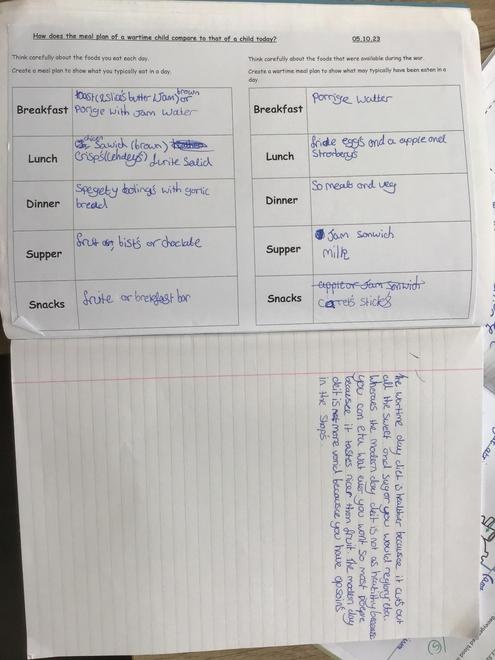 How does the meal plan of a wartime child compare to that of a child today? 05.10.23
Think carefully about the foods you eat each day.
Create a meal plan to show what you typically eat in a day.
Breakfast
toast (2 slias butter &Jam) or brown
Porrige with Jam Water
Lunch
chicen Sawich (brown)
Crisps (Lehdeys) furite Salid
Dinner
Spegety bolings with garlic
bread
Supper
frut or bist's or choclate
Snacks
fruite or brekfast bar
Think carefully about the foods that were available during the war.
Create a wartime meal plan to show what may typically have been eaten in a
day.
Breakfast
Porrige Watter
Lunch
fride eggs and a apple and
Stronberys
Dinner
So meats and veg
Supper
Jam Sonwich
milk
Snacks
apple or Jam Sonwich
Carrets sticks
The wartime day diet is healthier becausse it cuts out
all the sweet and sugar you would reglary eat.
Wheraes the modern day deit is not as healtihy becausse
you can etu wat ever you wont so most people
becausse it tastes nicer than fruit. The modern day
deit is more varid becausse you have opsoins
in the shops